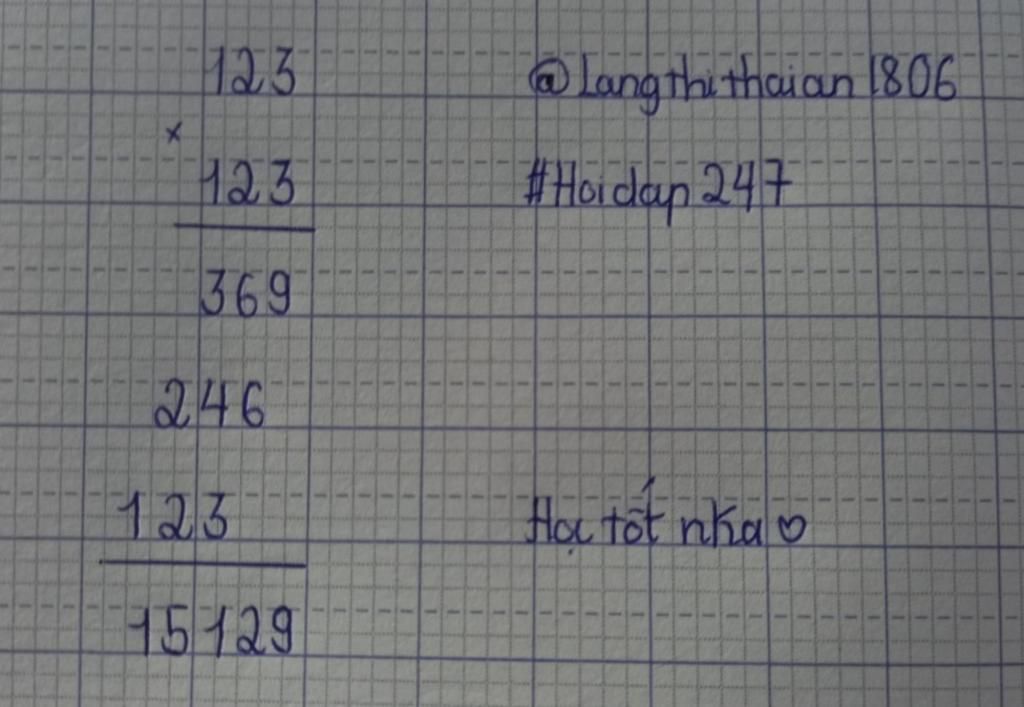 123
@Langthithaian1806
×
123
#Hoidap247
369
246
123
Học tốt nha♡
15129